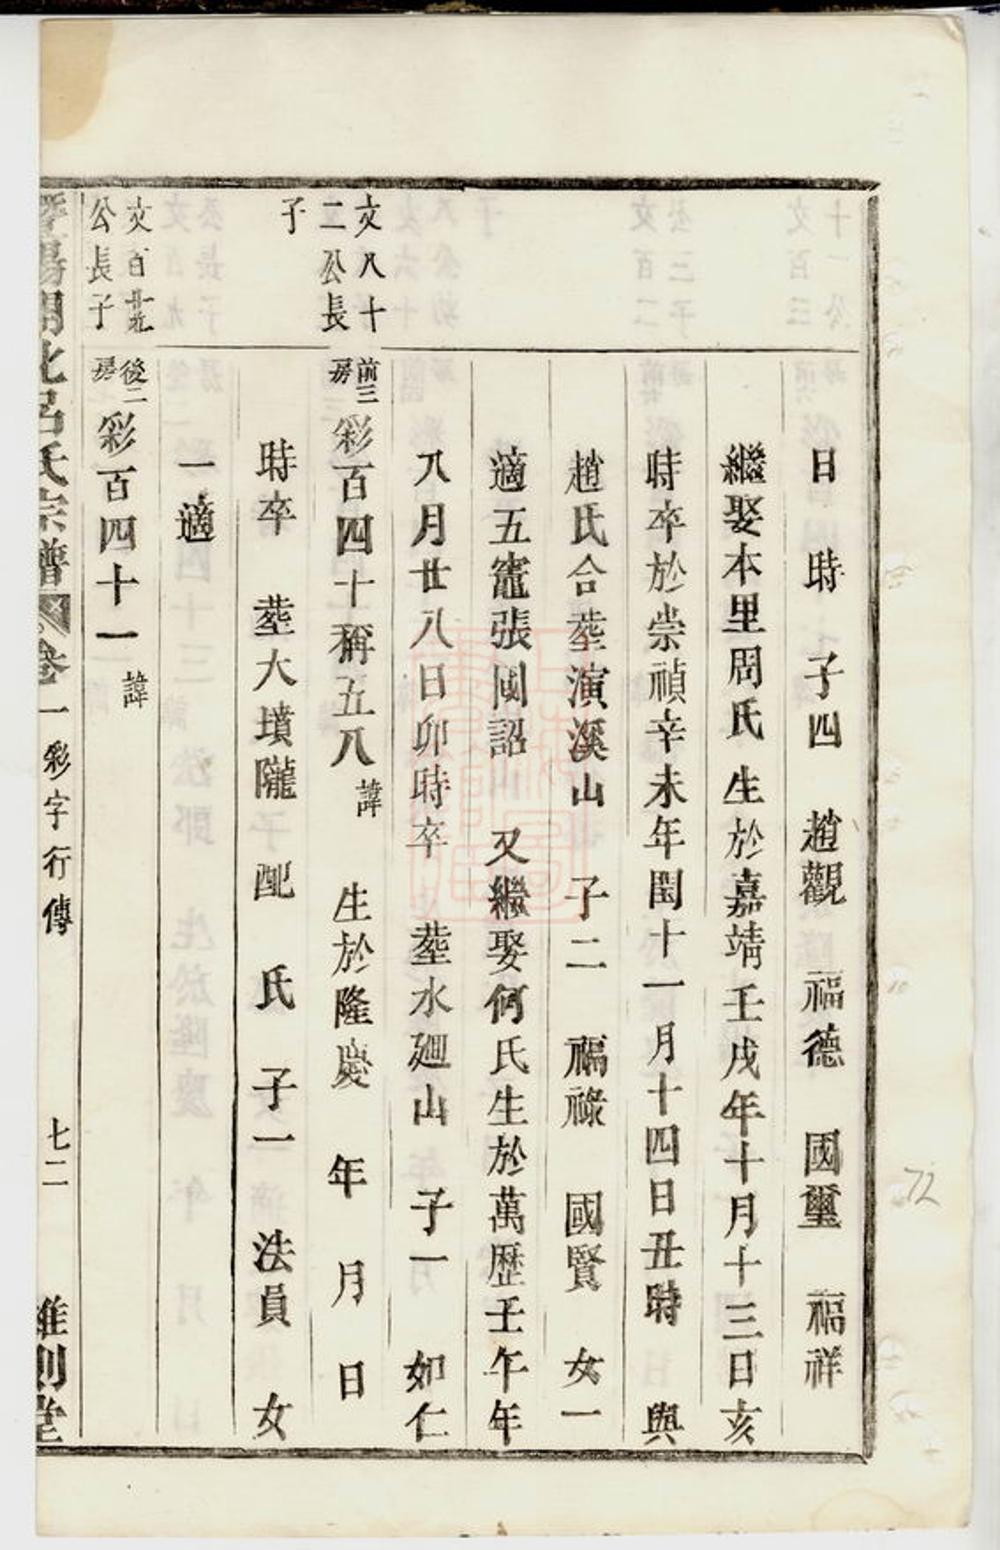 日　時　子四　趙觀　福德　國璽　福祥
繼娶本里周氏生於嘉靖壬戌年十月十三日亥
時卒於崇禎辛未年閏十一月十四日丑時　與
趙氏合塟演溪山　子二　福祿　國賢　女一
適五竈張國詔　又繼娶何氏生於萬歷壬午年
八月廿八日卯時卒　塟水廽山　子一　如仁
文八十
二公長
子
前三
房
彩百四十稱五八諱　生於隆慶　年　月　日
時卒　塟大墳隴　配　氏　子一　法員　女
一適
文百廿九
公長子
後二
房
彩百四十一諱
暨陽開化呂氏宗譜 卷一 彩字行傳　七二　維則堂
72